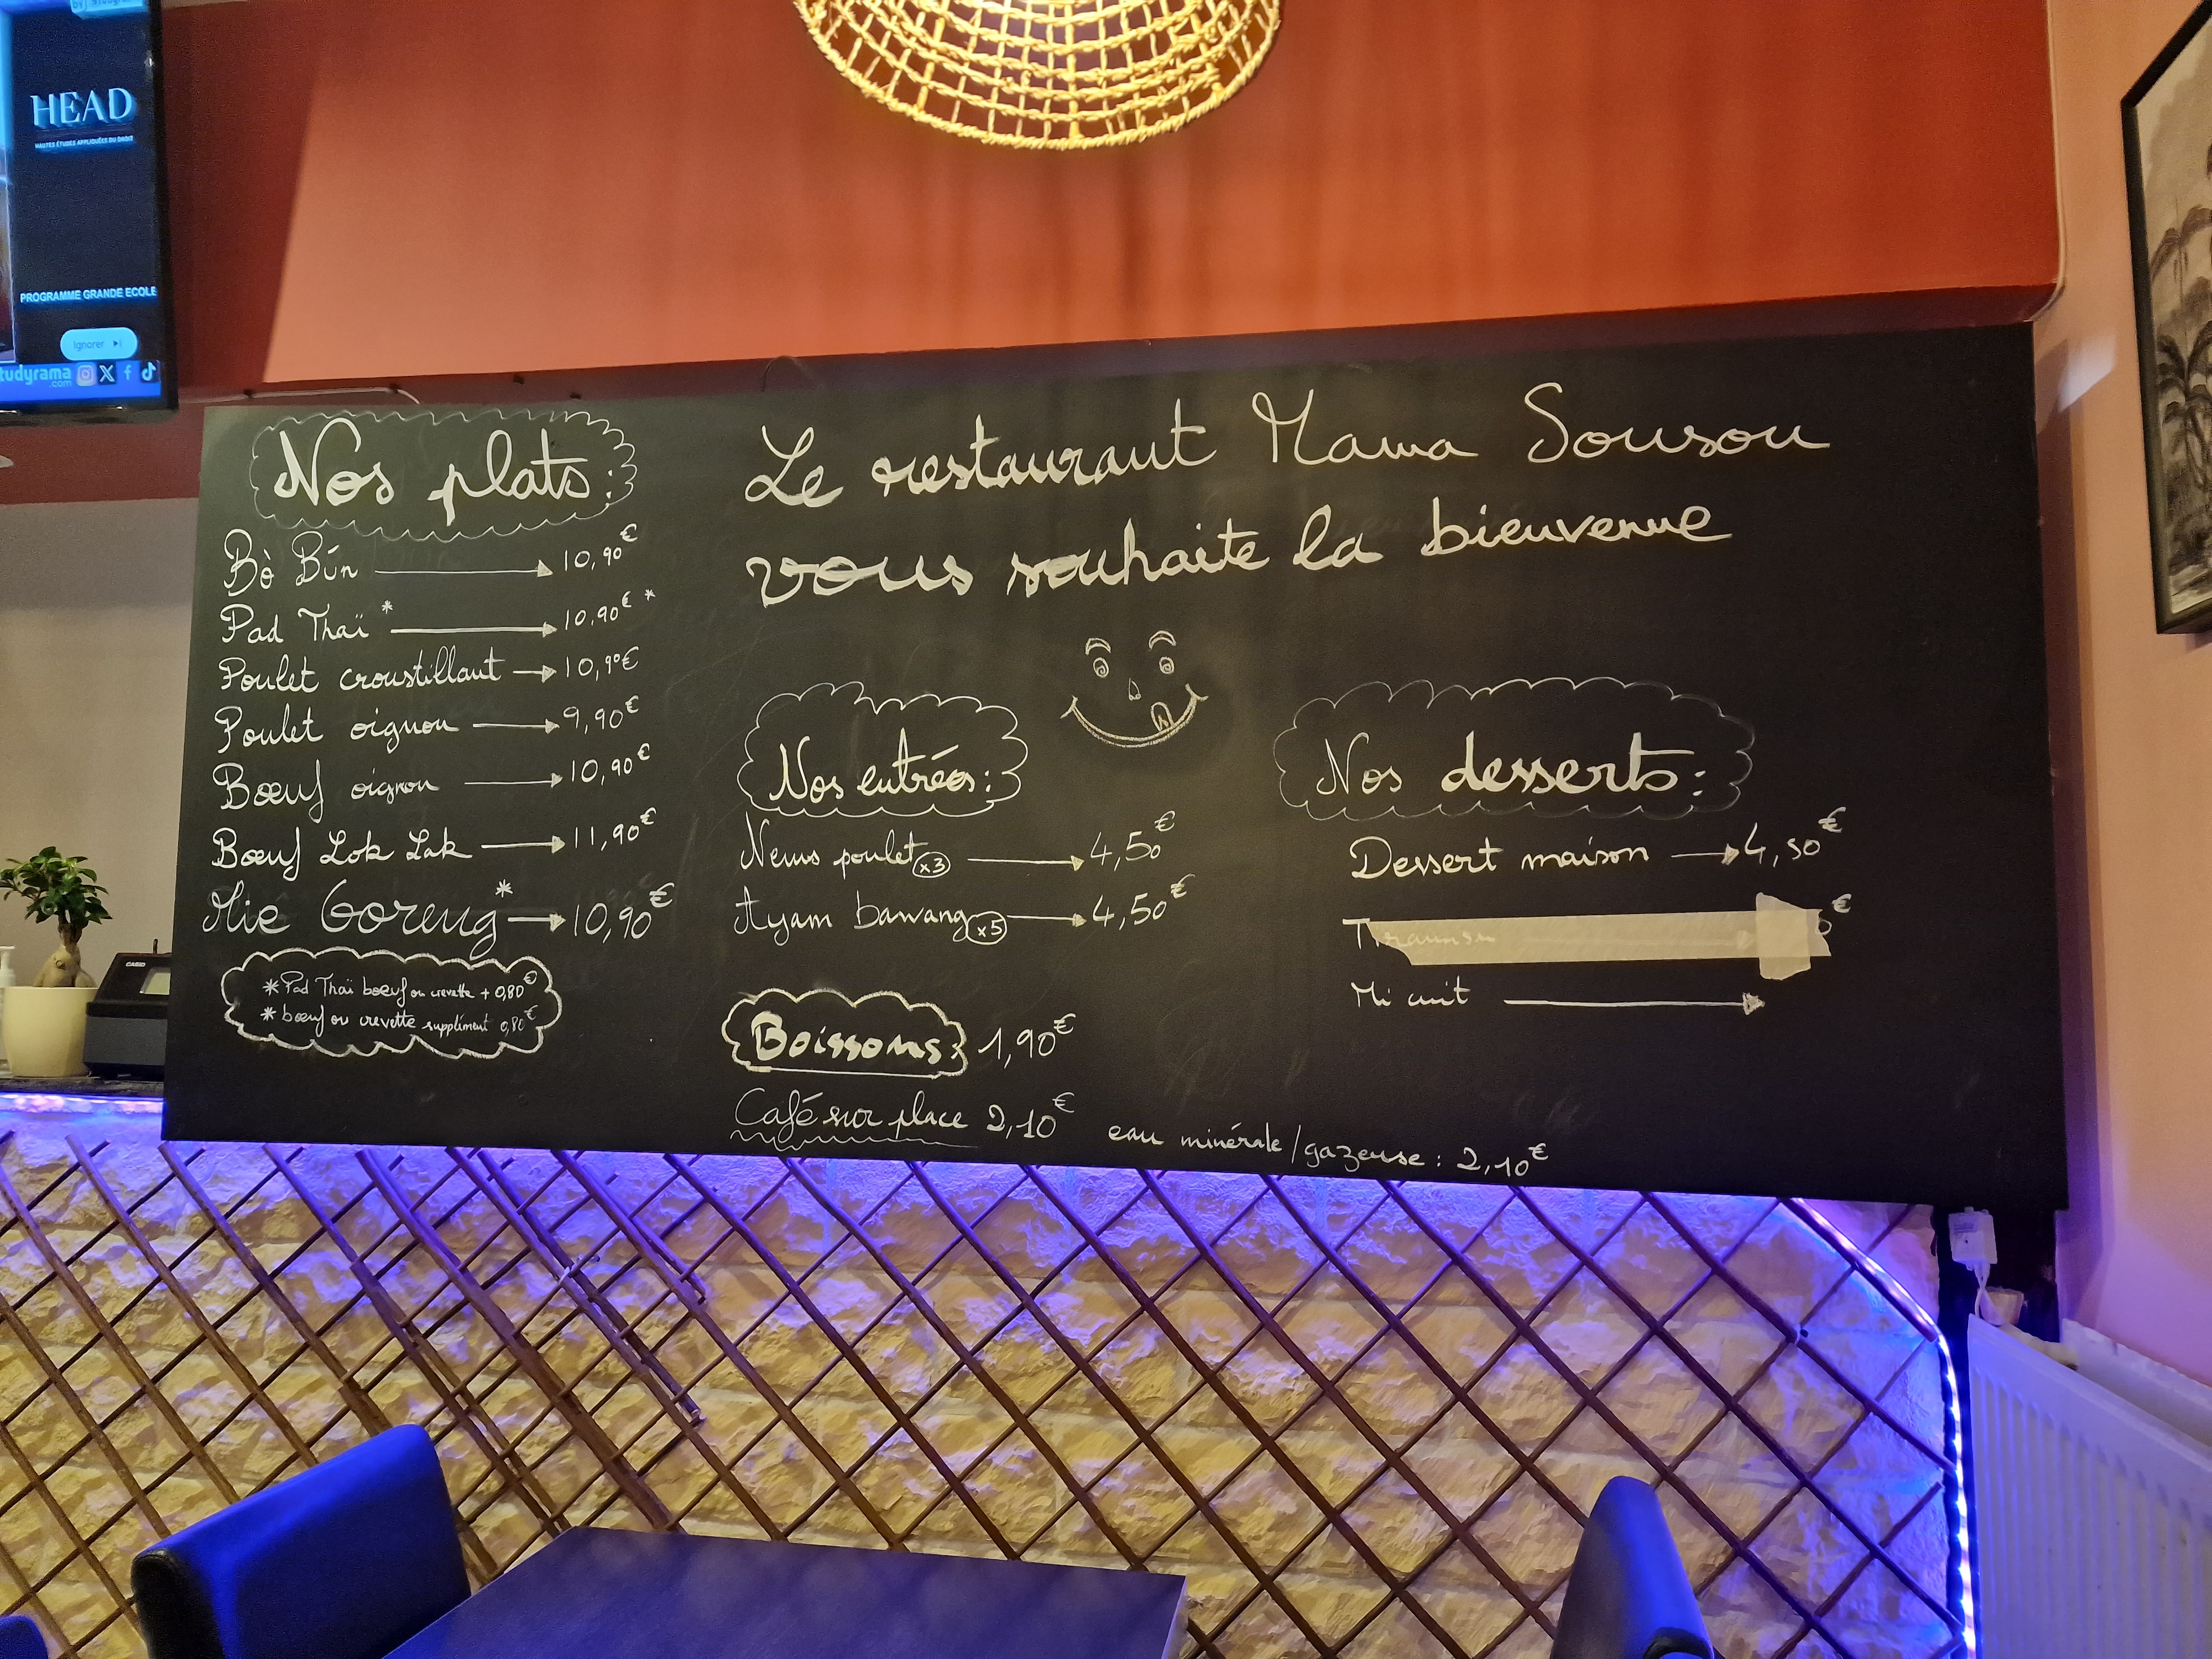 HEAD
HAUTES ÉTUDES APPLIQUÉES DU DROIT
PROGRAMME GRANDE ECOLE
Ignorer
tudyrama
.com
Nos plats:
Bò Bún 10,90€
Pad Thaï* 10.90€*
Poulet croustillant 10,90€
Poulet oignon 9,90€
Bœuf oignon 10,90€
Bœuf Lok Lak 11,90€
Mie Goreng* 10,90€
* Pad Thaï bœuf ou crevette + 0,80€
* bœuf ou crevette supplément 0,80€
Le restaurant Mama Sousou
vous souhaite la bienvenue
Nos entrées:
Nems poulet x3 4,50€
Ayam bawang x5 4,50€
Boissons: 1,90€
Café sur place 2,10€
eau minérale/gazeuse: 2,10€
Nos desserts:
Dessert maison 4,50€
€
Mi cuit
CASIO